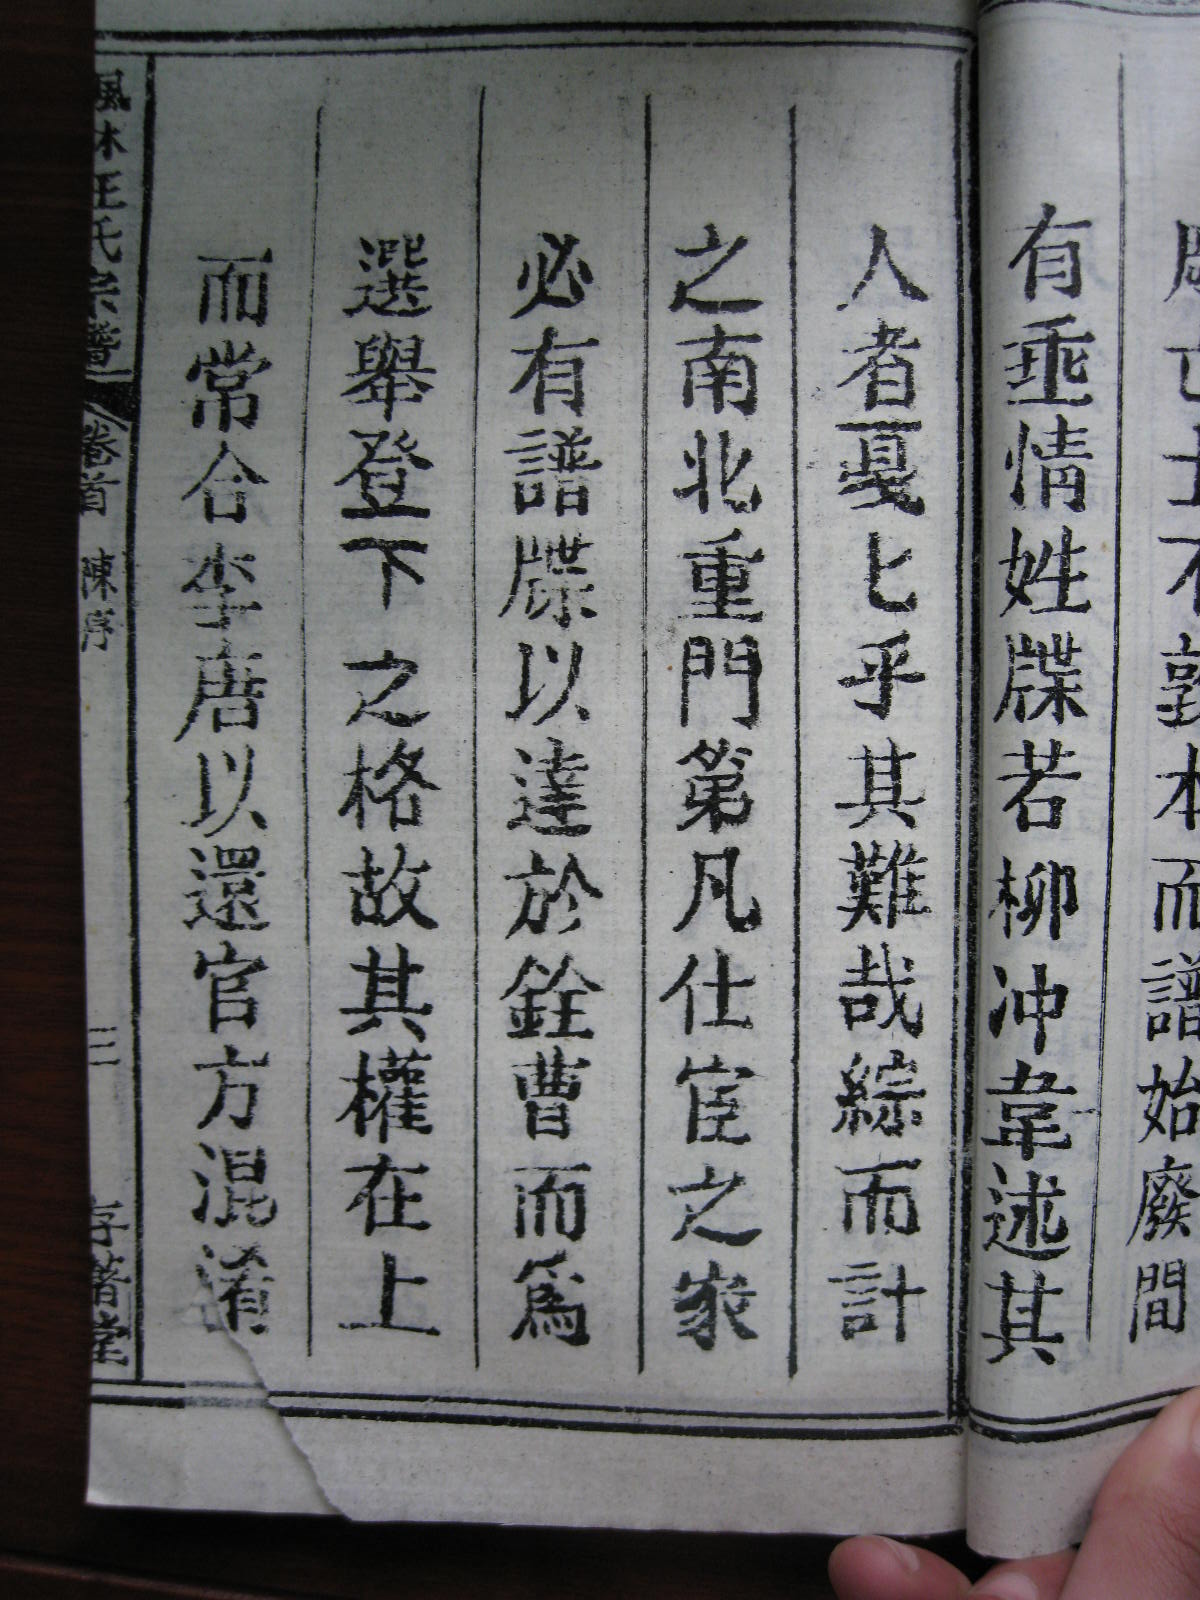 亡士不敦本而譜始廢間
有垂情姓牒若柳冲韋述其
人者戞匕乎其難哉綜而計
之南北重門第凡仕宦之家
必有譜牒以達於銓曹而爲
選舉登下之格故其權在上
而常合李唐以還官方混淆
楓林王氏宗譜
卷首 陳序
三
存著堂